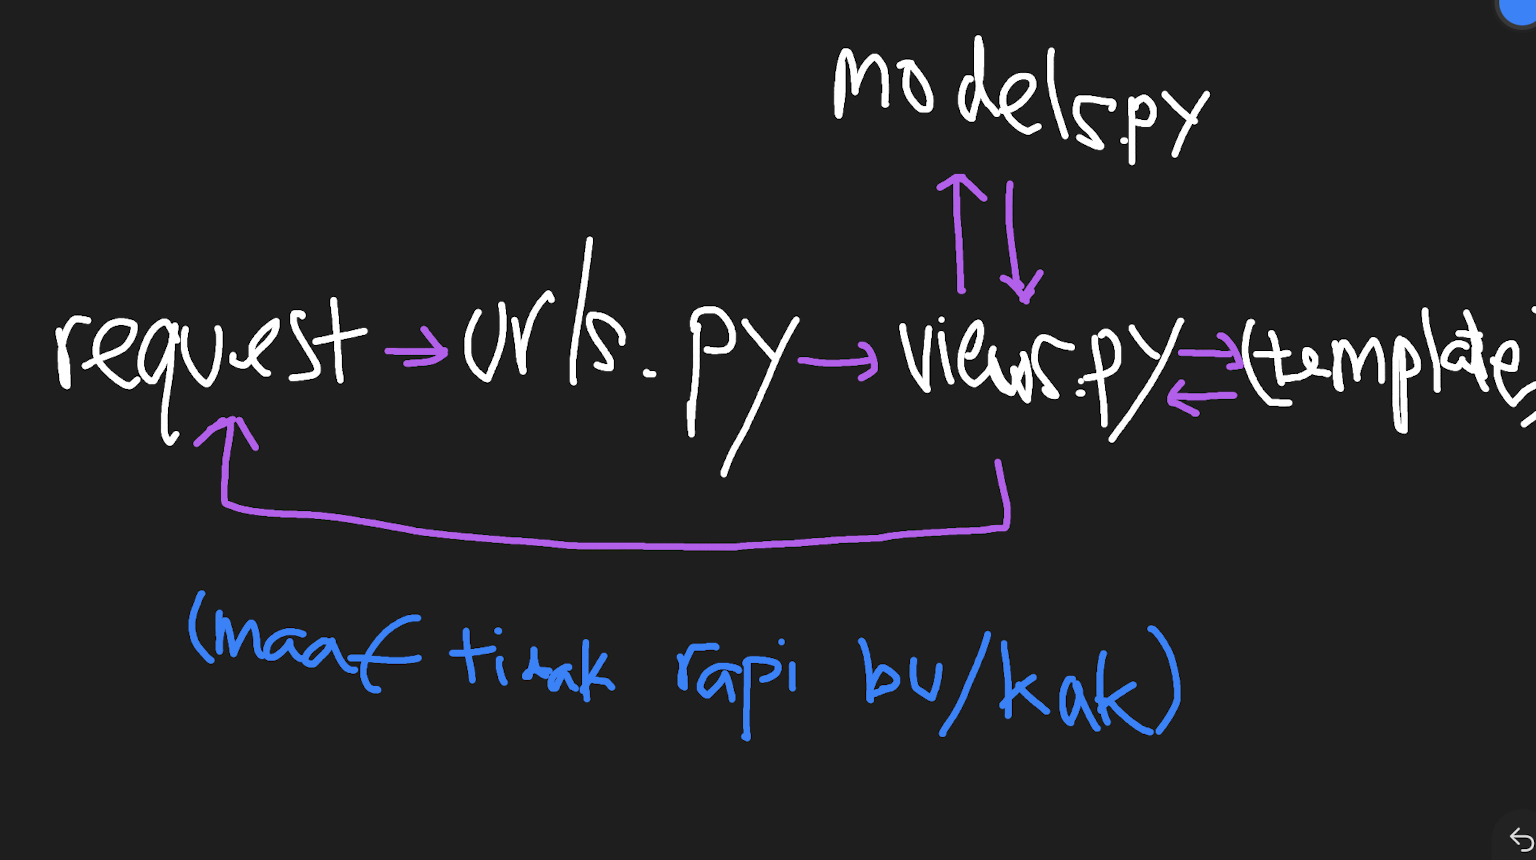 models.py
request → urls.py → views.py (template
(maaf tidak rapi bu/kak)